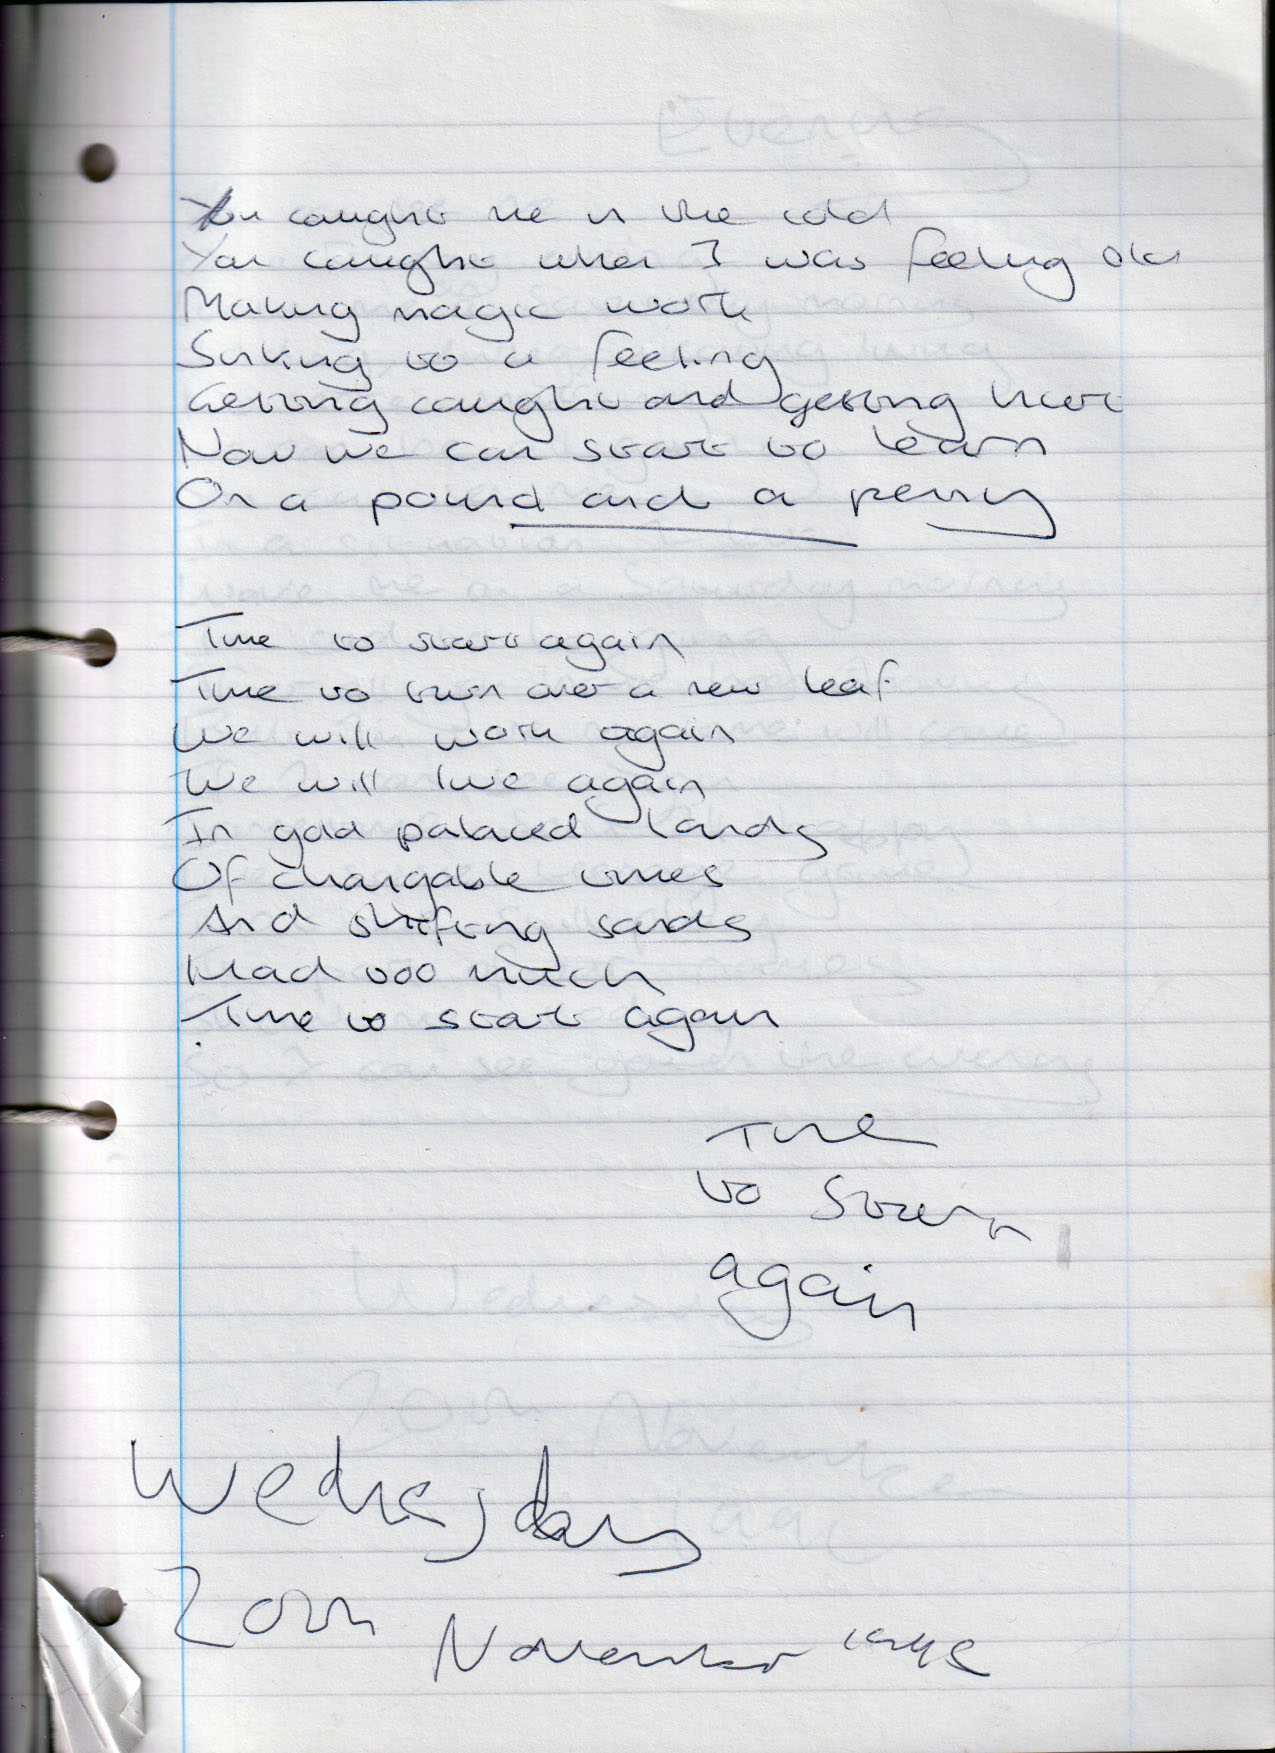 You caught me in the cold
You caught when I was feeling old
Making magic work
Sinking to a feeling
Getting caught and getting hurt
Now we can start to learn
On a pound and a penny
Time to start again
Time to turn over a new leaf
We will work again
We will live again
In gold palaced lands
Of changable times
And shifting sands
Mad too much
Time to start again
Time
to start
again
Wednesday
20th November